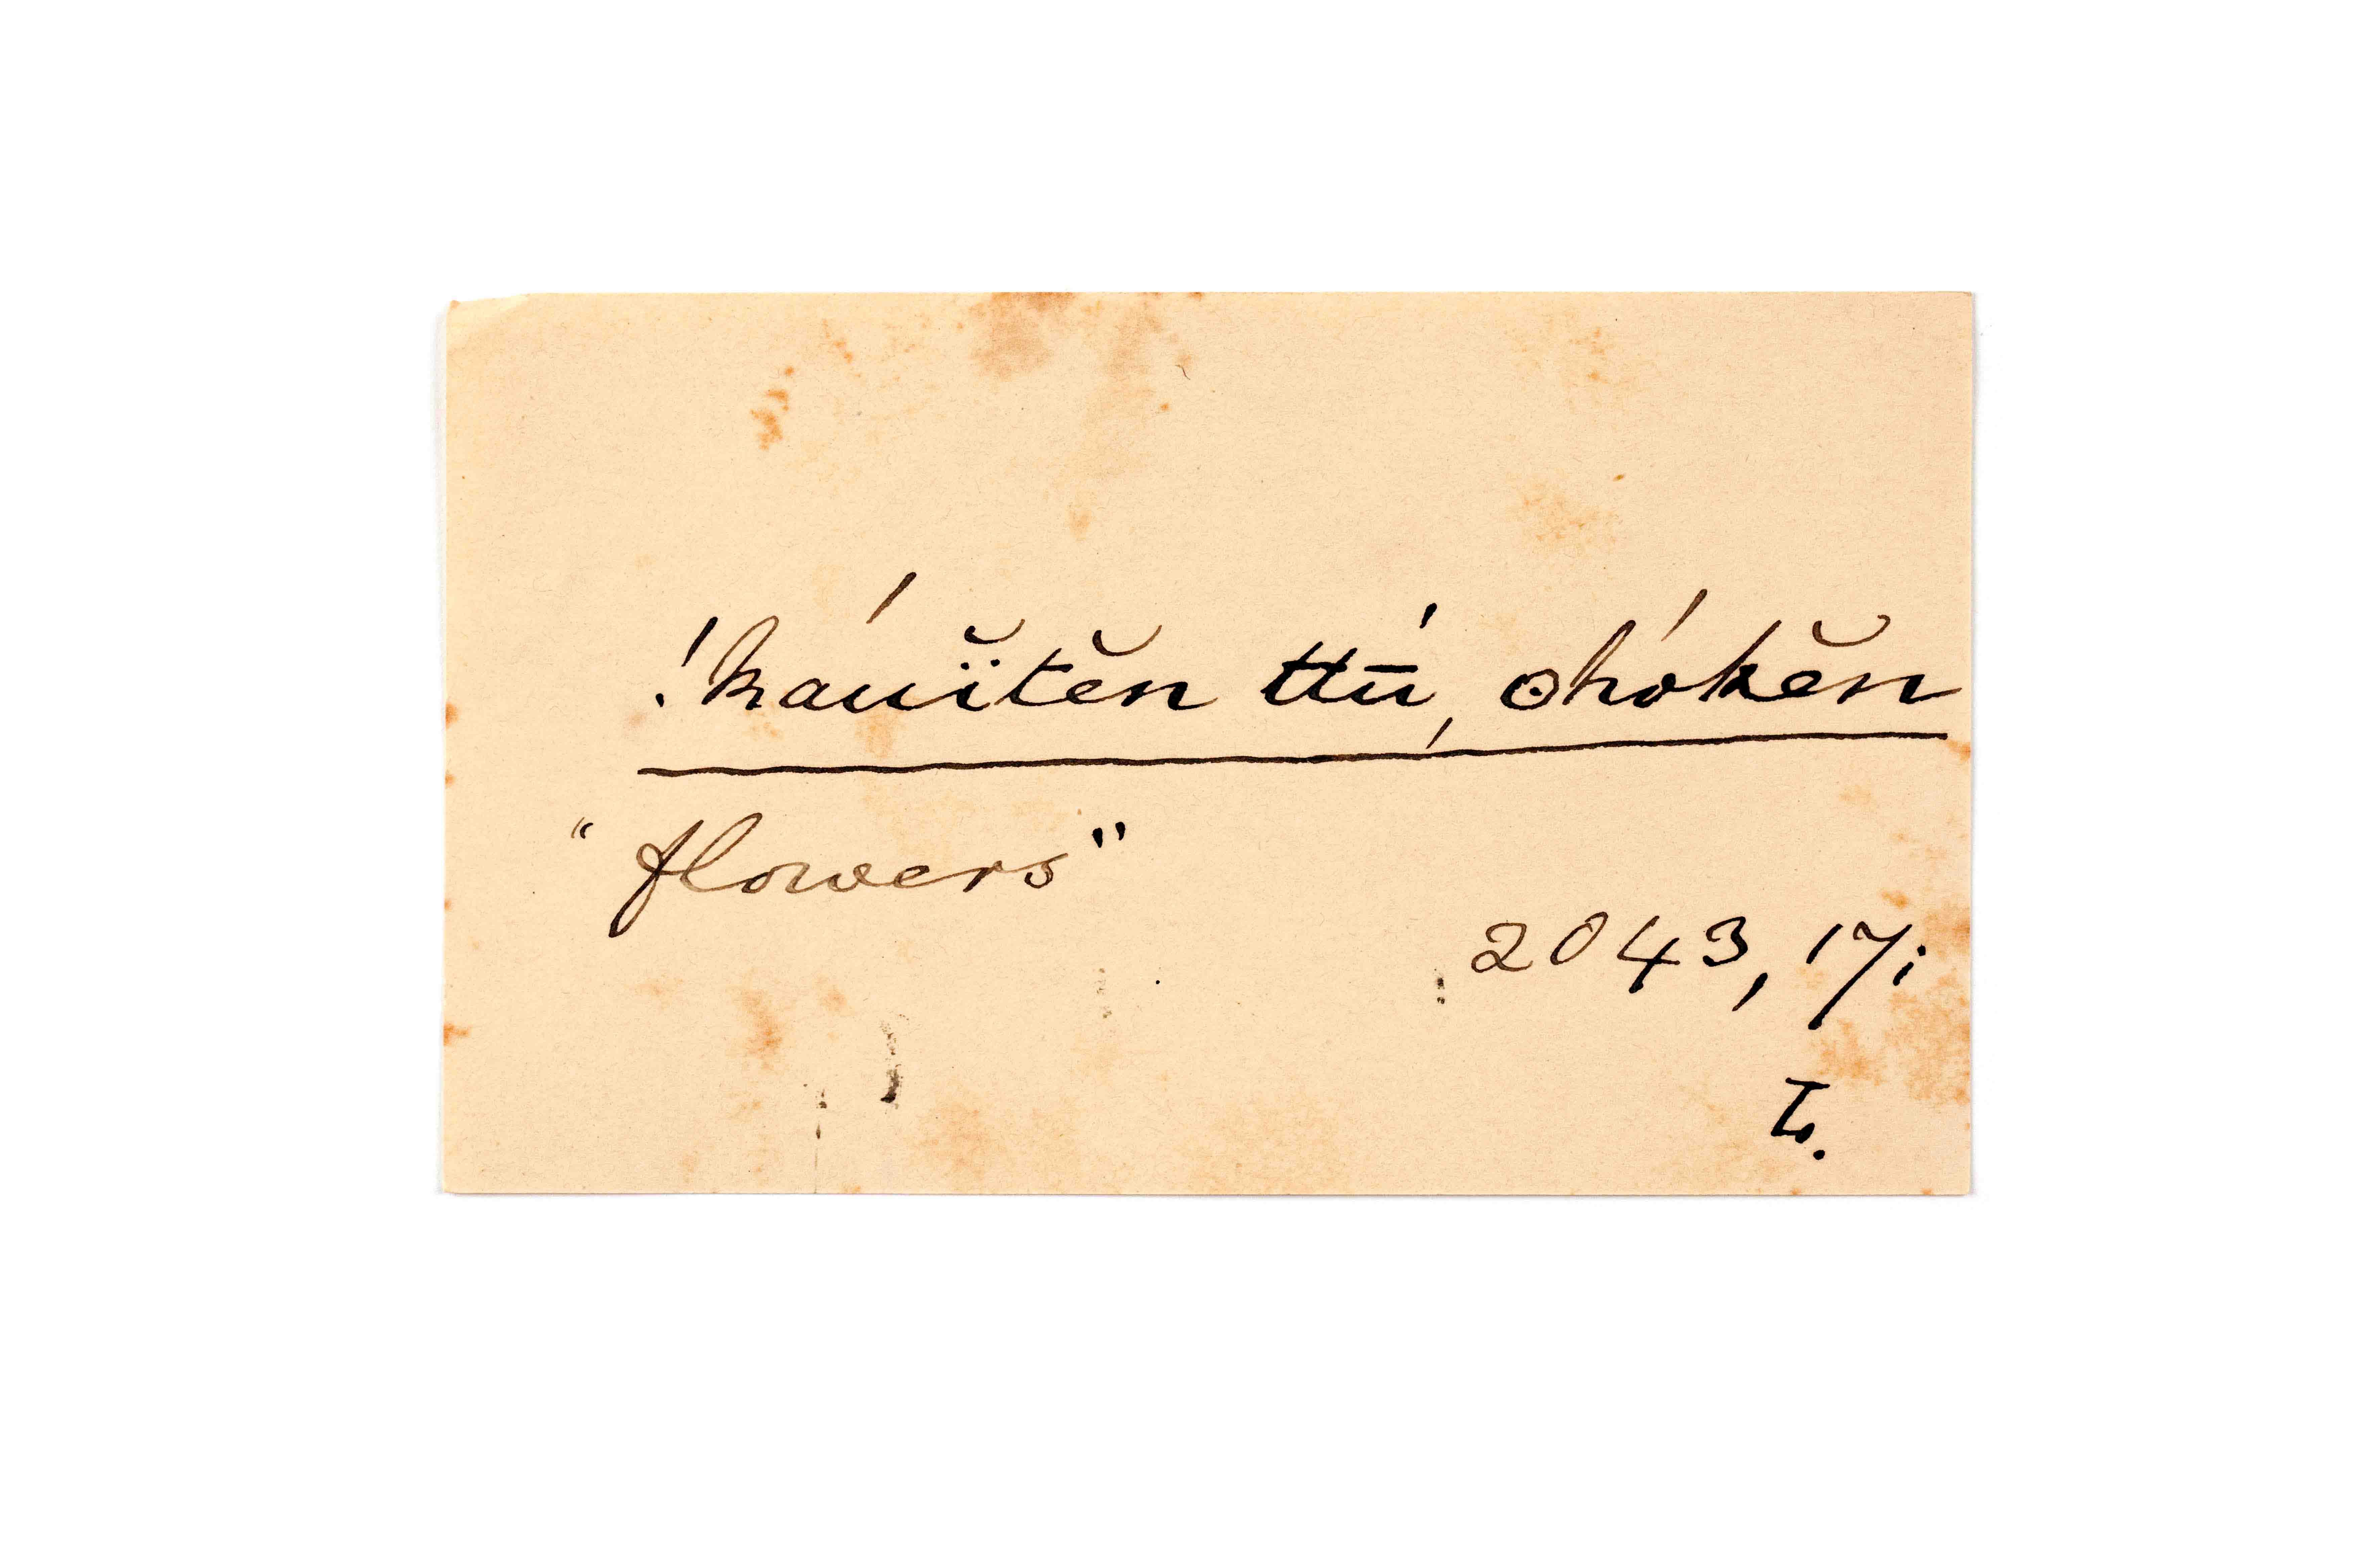 !káuï̆tĕn ttū́, ʘhókĕn
"flowers"
2043, 17;